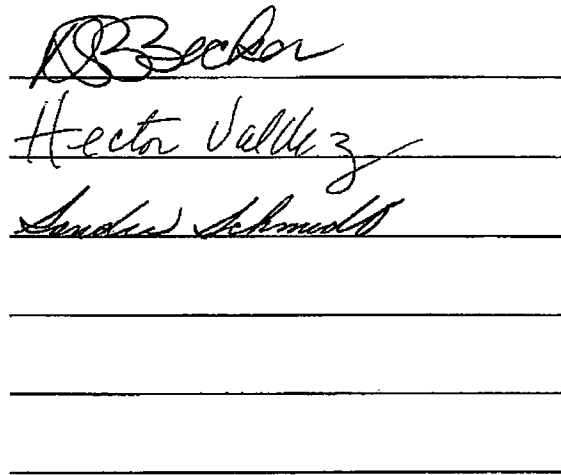 Becker
Hector Valdez
Sandra Schmidt